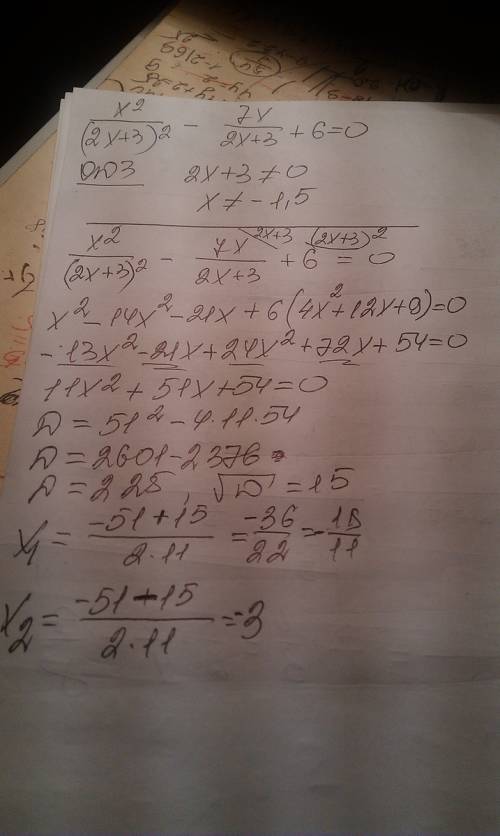 x²/(2x+3)² - 7x/2x+3 + 6=0
ОДЗ 2x+3≠0
x≠-1,5
x²/(2x+3)² - 7x/2x+3 2x+3 + 6 (2x+3)² = 0
x²-14x²-21x+6(4x²+12x+9)=0
-13x²-21x+24x²+72x+54=0
11x²+51x+54=0
D=51²-4·11·54
D=2601-2376
D=225, √D=15
x₁= -51+15/2·11 = -36/22 = -18/11
x₂= -51-15/2·11 = -3